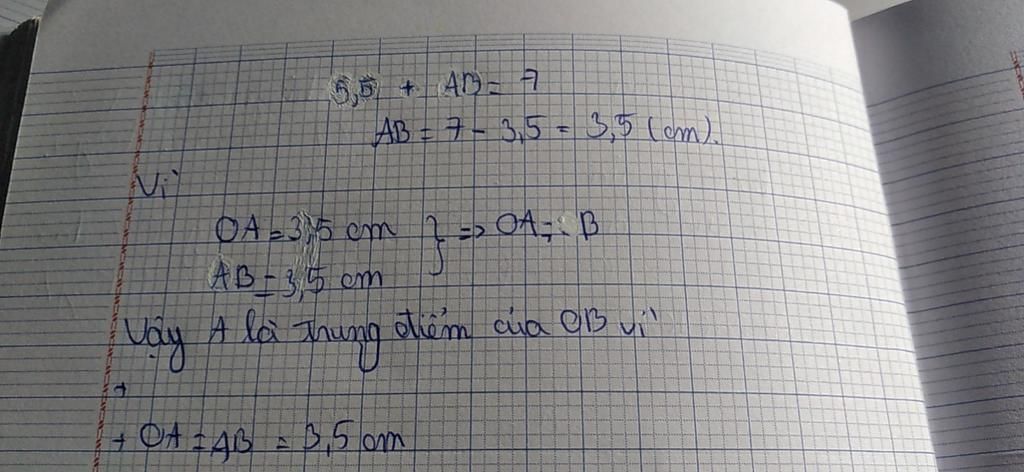 5,5 + AB = 7
AB = 7 - 3,5 = 3,5 (cm).
Vì
OA = 3,5 cm } => OA = B
AB = 3,5 cm
Vậy A là trung điểm của OB vì
+
+ OA = AB = 3,5 cm